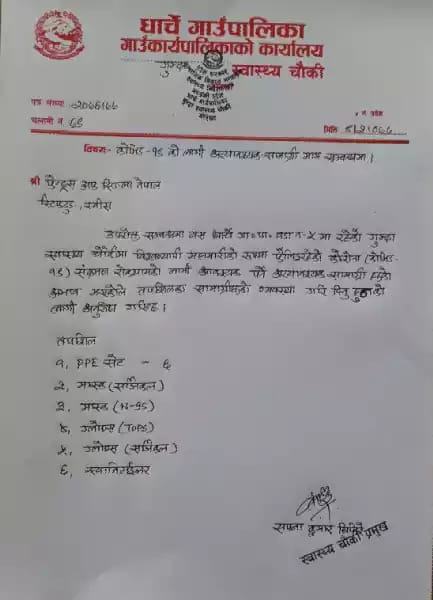 धार्चे गाउँपालिका
गाउँकार्यपालिकाको कार्यालय
गुम्दा स्वास्थ्य चौकी
पत्र संख्या :
चलानी नं.
मिति:
विषय:- कोभिड-१९ को लागी अत्यावश्यक सामाग्री माग सम्बन्धमा।
श्री फ्रेन्ड्स अफ नेपाल
उपरोक्त सम्बन्धमा यस धार्चे गा॰पा॰ वडा नं-५ मा रहेको गुम्दा
स्वास्थ्य चौकीमा विश्वव्यापी महामारीको रूपमा फैलिरहेको कोरोना (कोभिड-
१९) संक्रमण लागी आवश्यक पर्ने अत्यावश्यक सामाग्री
अभाव तपशिलका सामाग्रीहरुको व्यवस्था गरि दिनु हुनको
लागी अनुरोध गरिन्छ।
तपशिल
१, PPE सेट - ६
२, मास्क (सर्जिकल)
३, मास्क (N-95)
४, ग्लोब्स
५, ग्लोब्स (सर्जिकल)
६, स्यानिटाईजर
कुमार
स्वास्थ्य चौकी प्रमुख